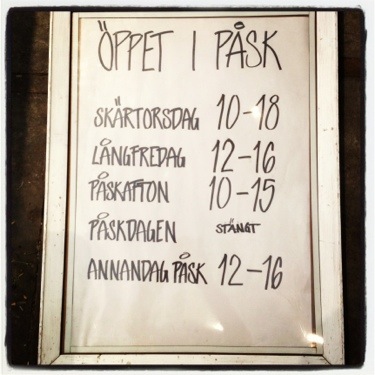 ÖPPET I PÅSK
SKÄRTORSDAG 10-18
LÅNGFREDAG 12-16
PÅSKAFTON 10-15
PÅSKDAGEN STÄNGT
ANNANDAG PÅSK 12-16